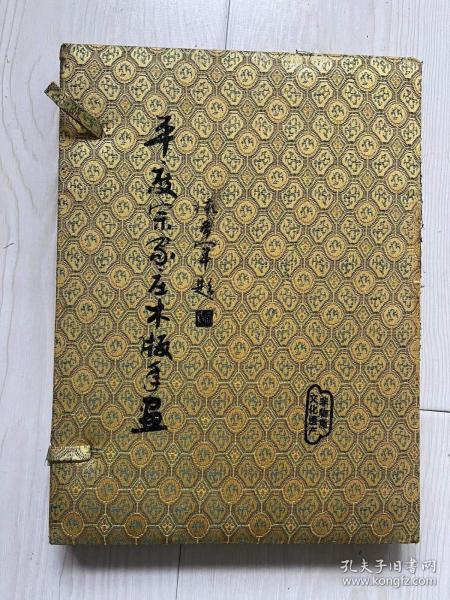 平度宗家庄木版年画
题
非物质
文化遗产
孔夫子旧书网
www.kongfz.com